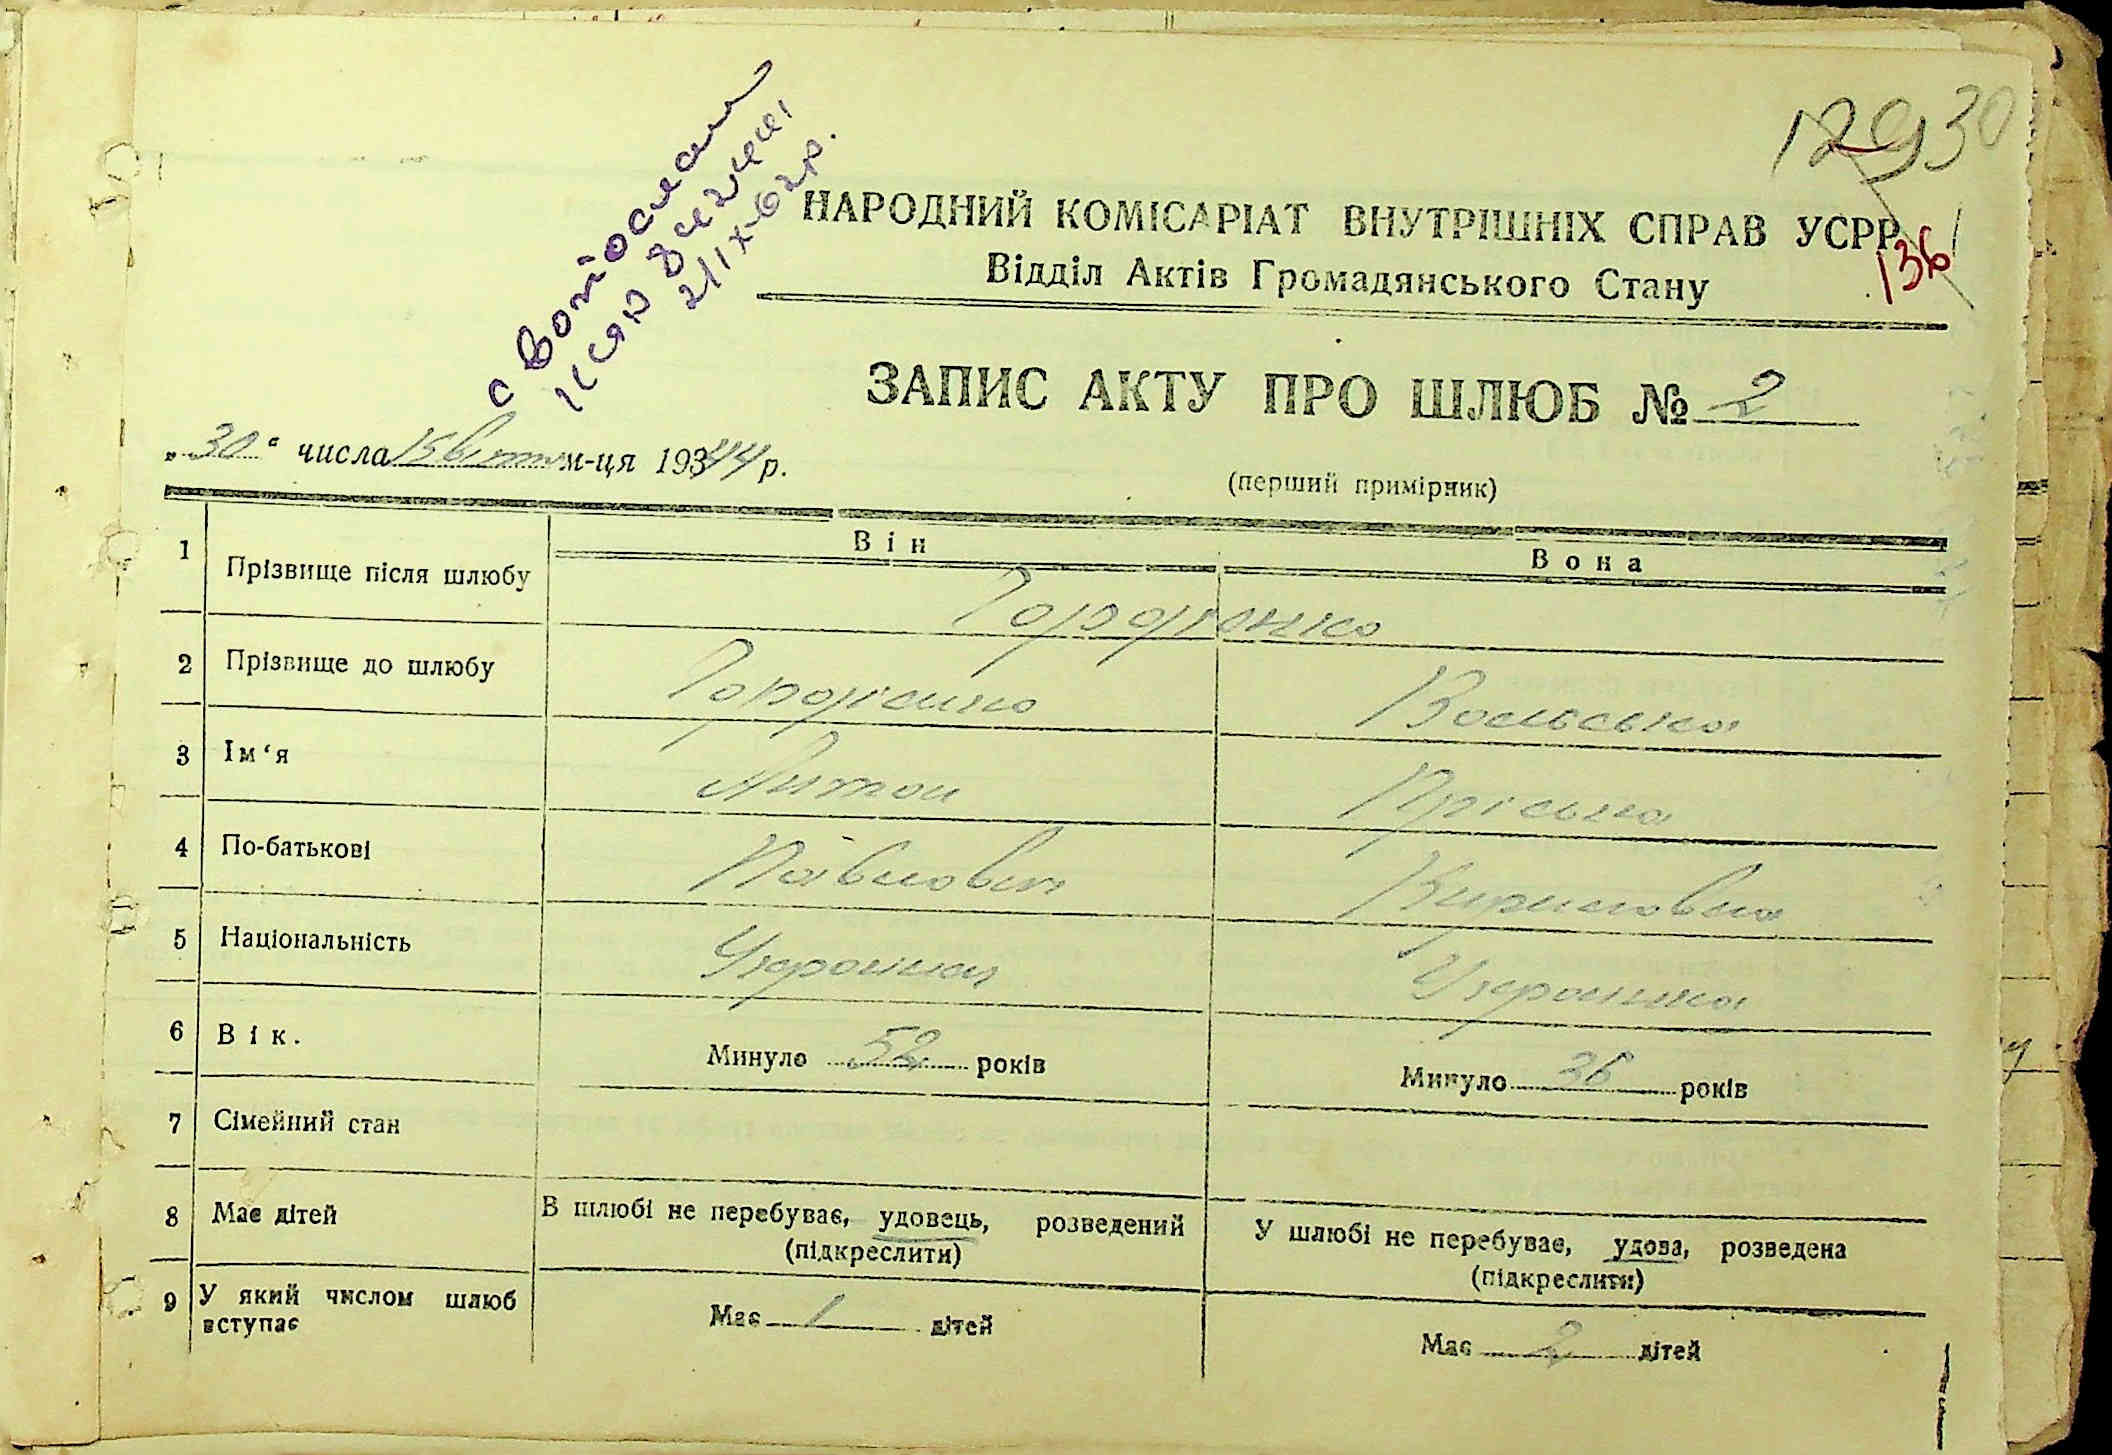 12930
с. Войтоаслани
2/IX-62 р.
НАРОДНИЙ КОМІСАРІАТ ВНУТРІШНІХ СПРАВ УСРР
136
Відділ Актів Громадянського Стану
ЗАПИС АКТУ ПРО ШЛЮБ № 2
„30" числа м-ця 19344 р.
(перший примірник)
Він Вона
1 Прізвище після шлюбу Гордієнко
2 Прізвище до шлюбу Гордієнко Вольська
3 Ім'я Антон Пріська
4 По-батькові Павлович Кириловна
5 Національність Українец Українка
6 Вік. Минуло 52 років Минуло 36 років
7 Сімейний стан
8 Має дітей В шлюбі не перебуває, удовець, розведений У шлюбі не перебуває, удова, розведена
(підкреслити) (підкреслити)
9 У який числом шлюб вступає Має 1 дітей Має 2 дітей